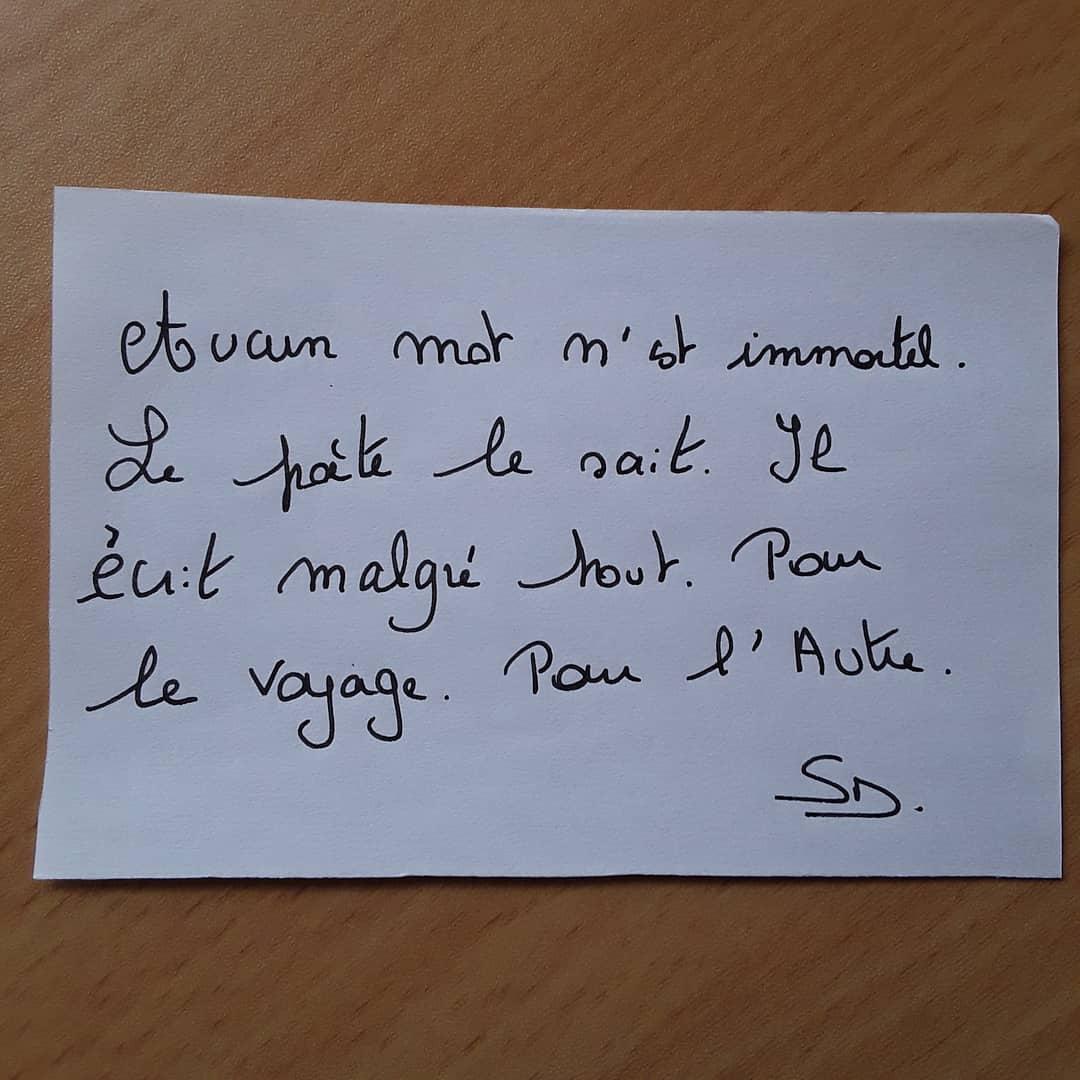 Aucun mot n'est immortel.
Le poète le sait. Il
écrit malgré tout. Pour
le voyage. Pour l'Autre.
SD.